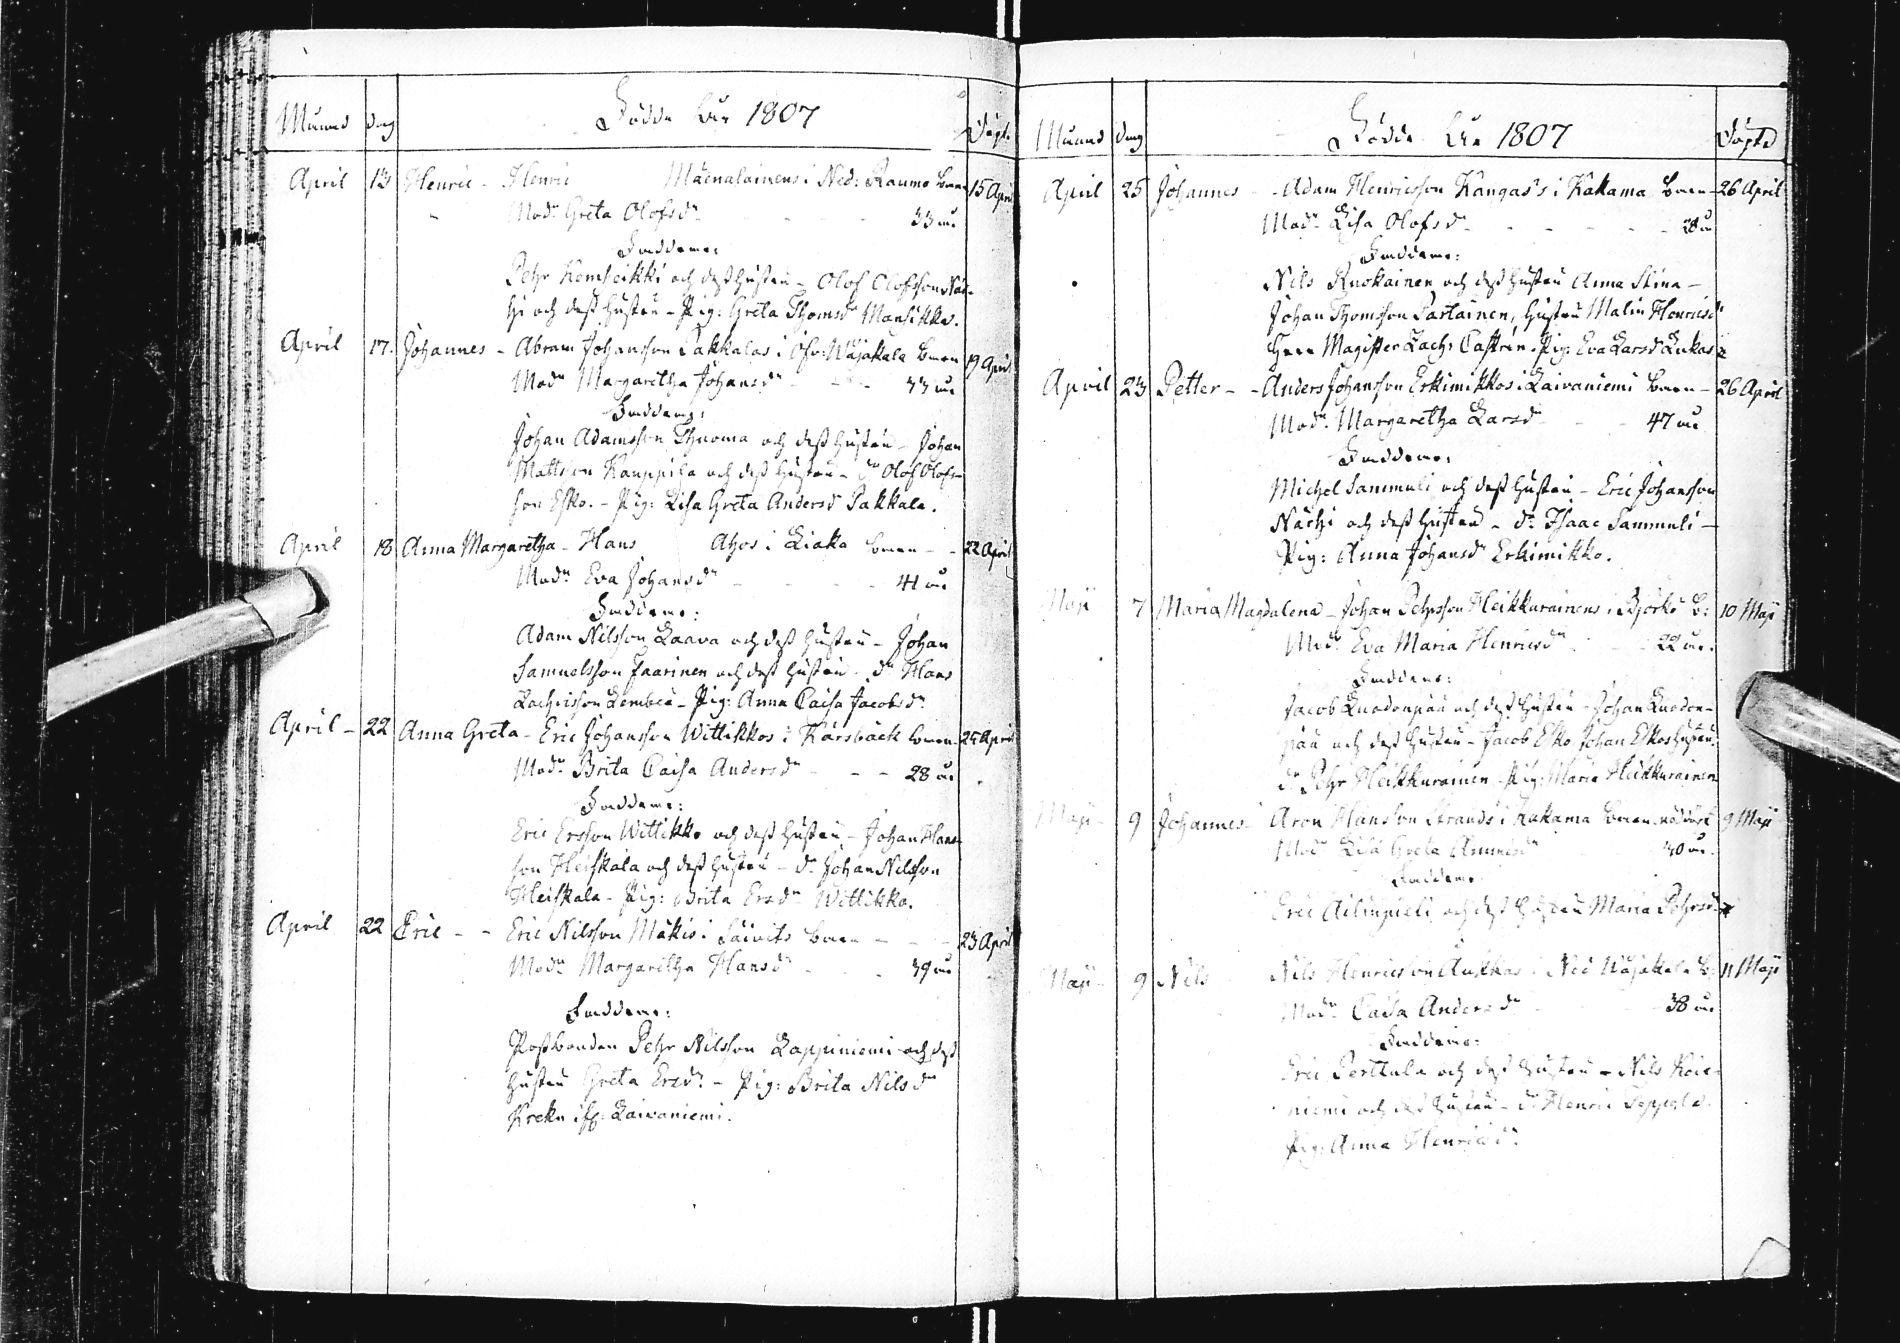 Månad dag Födde År 1807 Döpte
April 13 Henric - Henric Mäenalainens i Ned: Raumo barn 15 April
Modr Greta Olofsdr 33 år
Faddrare:
Pehr Kemheikki och dess hustru - Olof Olofsson Nät-
hi och dess hustru - Pig: Greta Thomsdr Mansikka.
April 17. Johannes - Abram Johansson Pakkalas i Öfv: Wojakala barn 19 April
Modr Margaretha Johansdr - - 33 år
Faddrare:
Johan Adamsson Thuoma och dess hustru - Johan
Mattsson Kauppila och dess hustru - dr Olof Olofs-
son Esko. - Pig: Lisa Greta Andersdr Pakkala.
April 18 Anna Margaretha - Hans Ahos i Liaka barn - - 22 April
Modr Eva Johansdr - - 41 år
Faddrare:
Adam Nilsson Laava och dess hustru - Johan
Samuelsson Jaarinen och dess hustru. dr Hans
Zachrisson - Pig: Anna Caisa Jacobsdr
April - 22 Anna Greta - Eric Johansson Wittikkos i Karsbäck barn - 25 April
Modr Brita Caisa Andersdr - - 28 år
Faddrare:
Eric Ersson Wittikko och dess hustru - Johan Hans-
son Heiskala och dess hustru - dr Johan Nilsson
Heiskala - Pig: Brita Ersdr Wittikko.
April 22 Eric - - Eric Nilsson Mäkis i Säivits barn - - 23 April
Modr Margaretha Hansdr 39 år
Faddrare:
Postbonden Pehr Nilsson Lappiniemi och dess
hustru Greta Ersdr - Pig: Brita Nilsdr
Kreku ifr: Laivaniemi.
Månad dag Födde År 1807 Döpte
April 25 Johannes - - Adam Henricsson Kangas's i Kakama barn - 26 April
Modr Lisa Olofsdr - - 28 år
Faddrare:
Nils Ruokainen och dess hustru Anna Stina -
Johan Thomsson Partainen, hustru Malin Henricsdr
Herr Magister Zach: Castrén. Pig: Eva Larsdr Lukas
April 23 Petter - - Anders Johansson Erkimikkos i Laivaniemi barn - 26 April
Modr Margaretha Larsdr - - 47 år
Faddrare:
Michel Sammuli och dess hustru - Eric Johansson
Näthi och dess hustru - dr Isaac Sammuli -
Pig: Anna Johansdr Erkimikko.
Maji 7 Maria Magdalena - Johan Pehrsson Heikkurainens i Björkö b: 10 Maji
Modr Eva Maria Henricsdr 22 år.
Faddrare:
Jacob Luodonpää och dess hustru - Johan Luodon-
pää och dess hustru - Jacob Esko Johan Eskos hustru.
dr Pehr Heikkurainen - Pig: Maria Heikkurainen
Maji - 9 Johannes - Aron Hansson Strands i Kakama barn nöddöpt 9 Maji
Modr Lisa Greta 30 år.
Faddrare
Eric Ailinpieti och dess hustru Maria Pehrsdr
Maji - 9 Nils Nils Henricsson i Ned Wojakala b: 11 Maji
Modr Caisa Andersdr - 38 år
Faddrare:
Eric Perttula och dess hustru - Nils Koie-
niemi och dess hustru - dr Henric Seppälä.
Pig: Anna Henricsdr